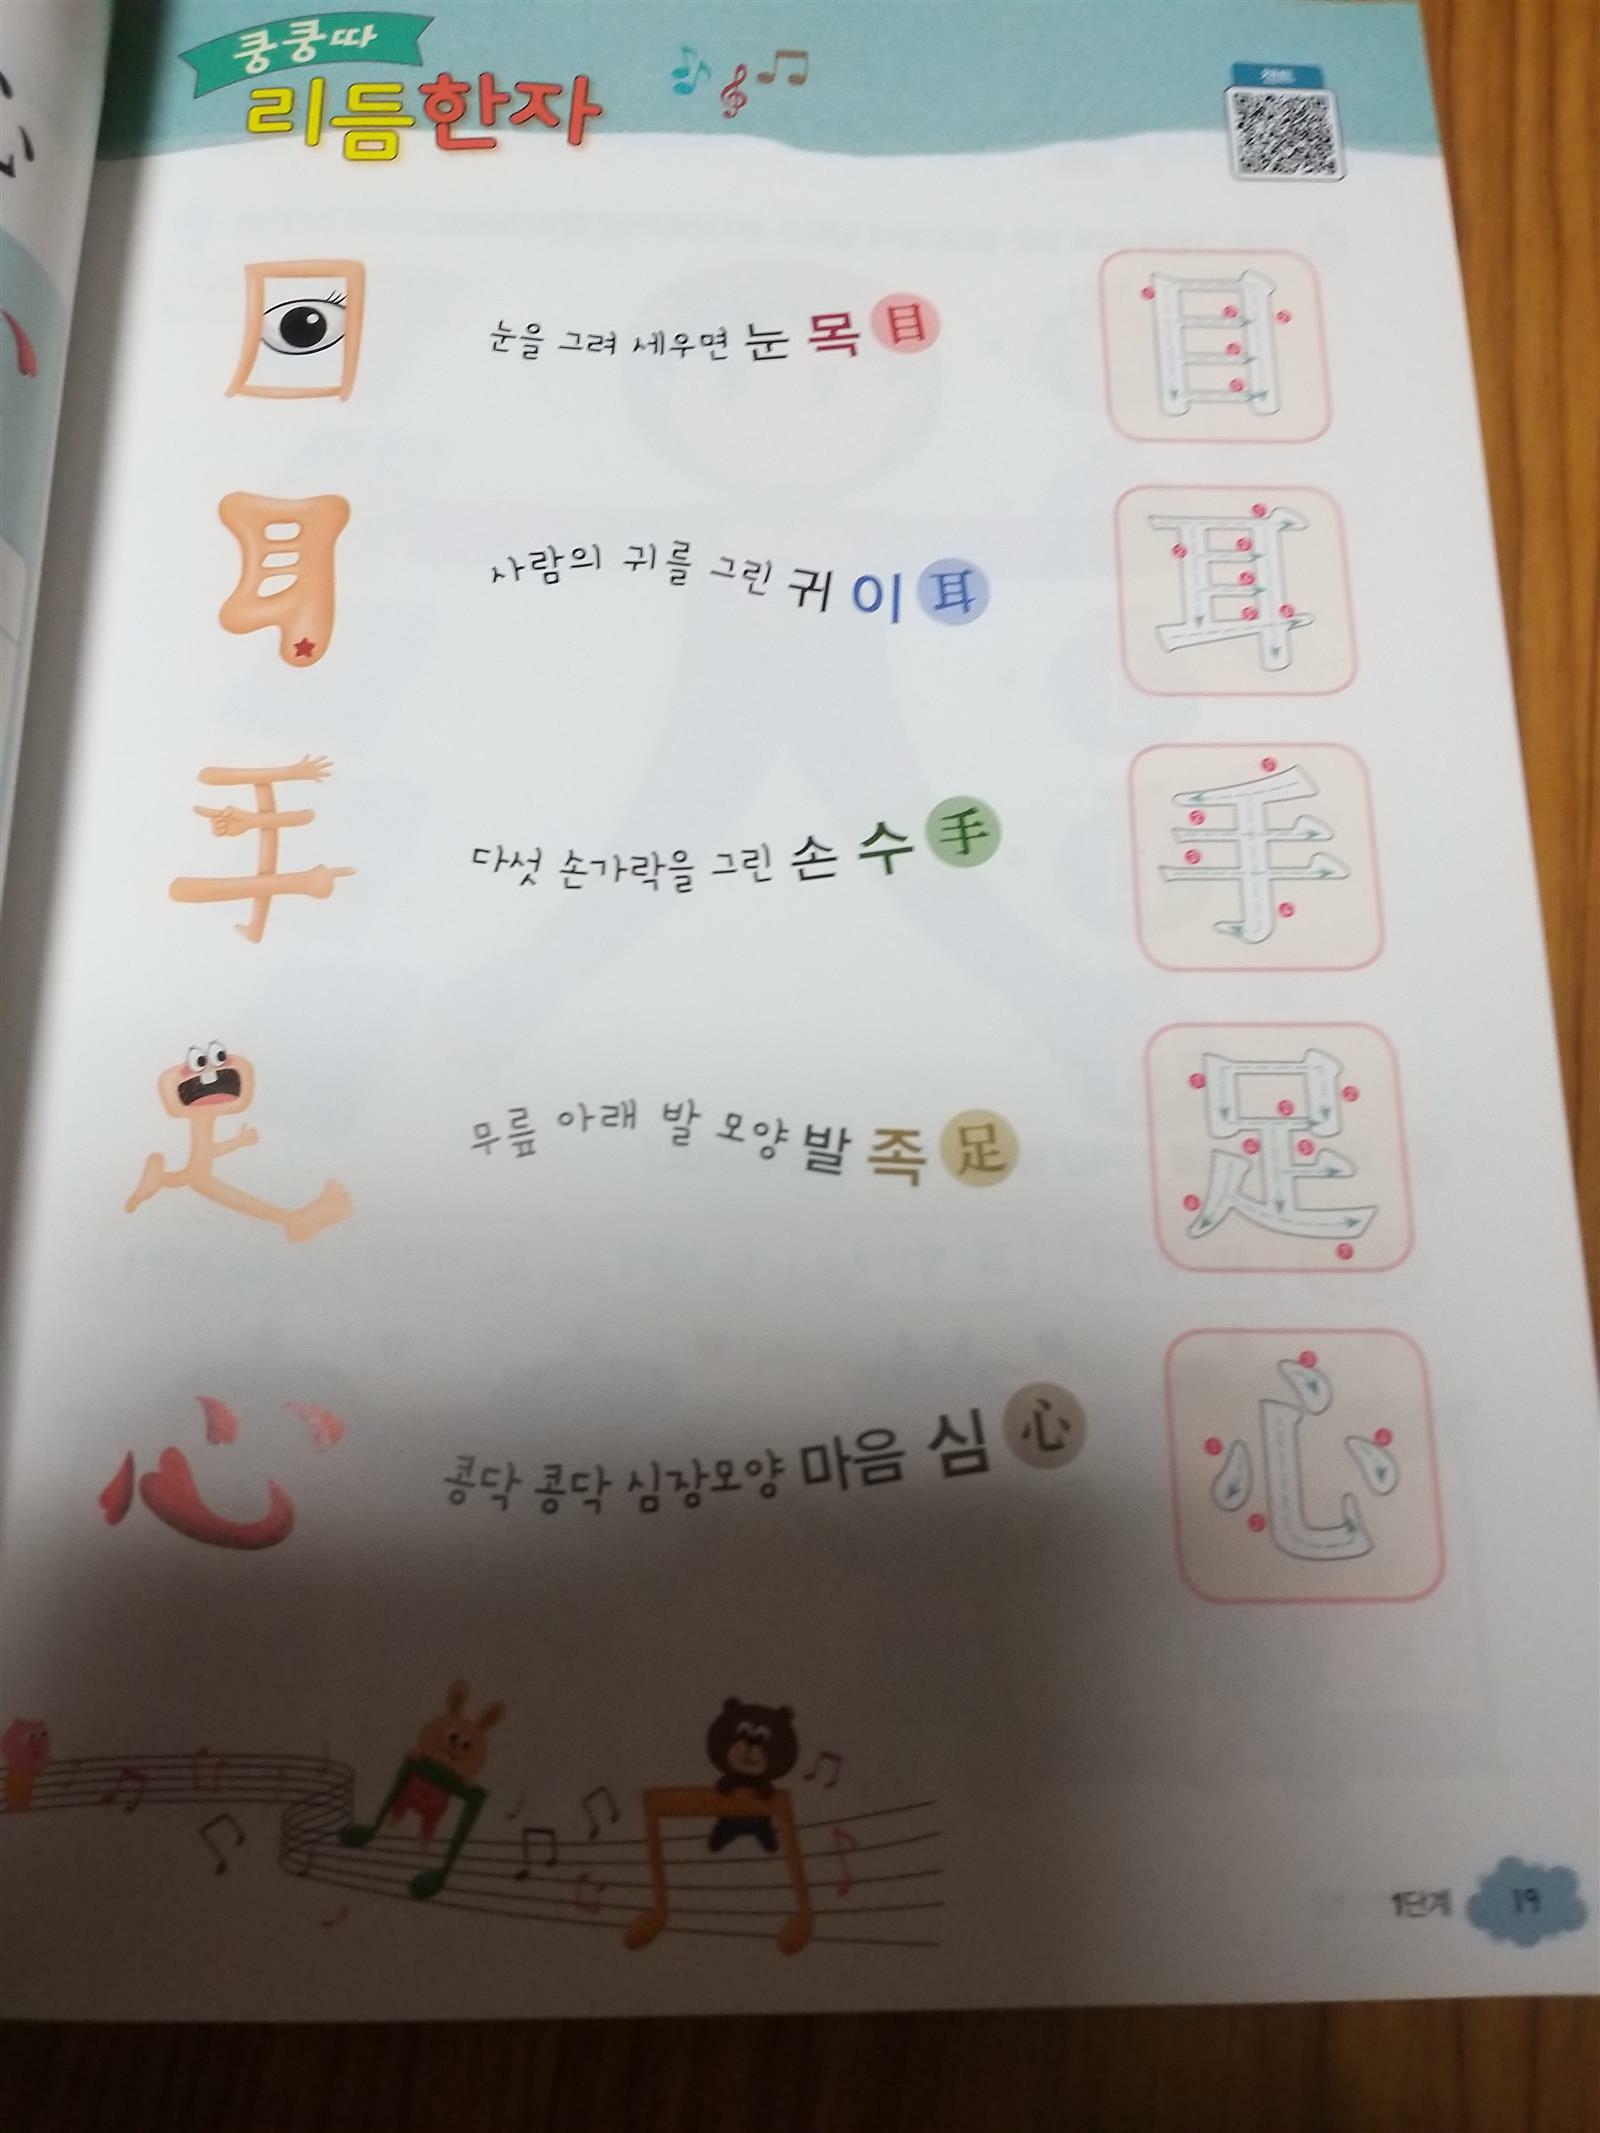 쿵쿵따
리듬한자
챈트
눈을 그려 세우면 눈 목 目
사람의 귀를 그린 귀 이 耳
다섯 손가락을 그린 손 수 手
무릎 아래 발 모양 발 족 足
콩닥 콩닥 심장모양 마음 심 心
目
耳
手
足
心
1단계 19